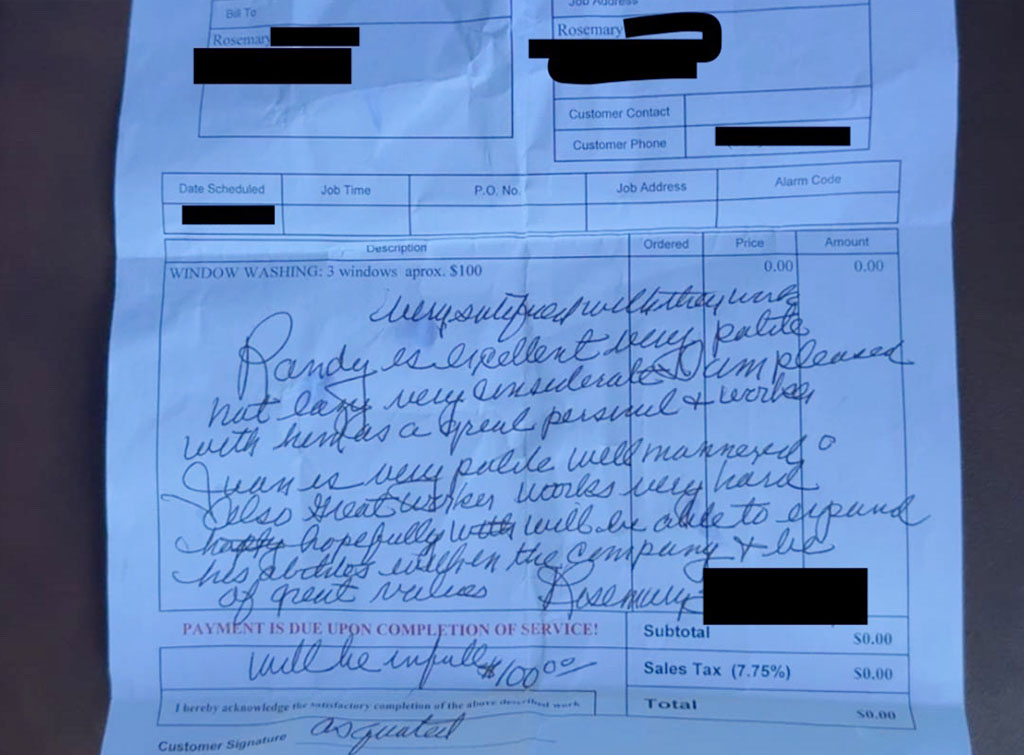 Bill To
Job Address
Rosemary
Rosemary
Customer Contact
Customer Phone
Date Scheduled Job Time P.O. No. Job Address Alarm Code
Description Ordered Price Amount
WINDOW WASHING: 3 windows aprox. $100 0.00 0.00
very satified with they work
Randy is excellent very polite
not lazy very considerate I am pleased
with him as a great personal + worker
Juan is very polite well mannered
also great worker works very hard
happy hopefully with will be able to expand
his within the company + be
of great values Rosemary
PAYMENT IS DUE UPON COMPLETION OF SERVICE!
Subtotal $0.00
will be in full $100.00
Sales Tax (7.75%) $0.00
I hereby acknowledge the satisfactory completion of the above described work
Total $0.00
Customer Signature